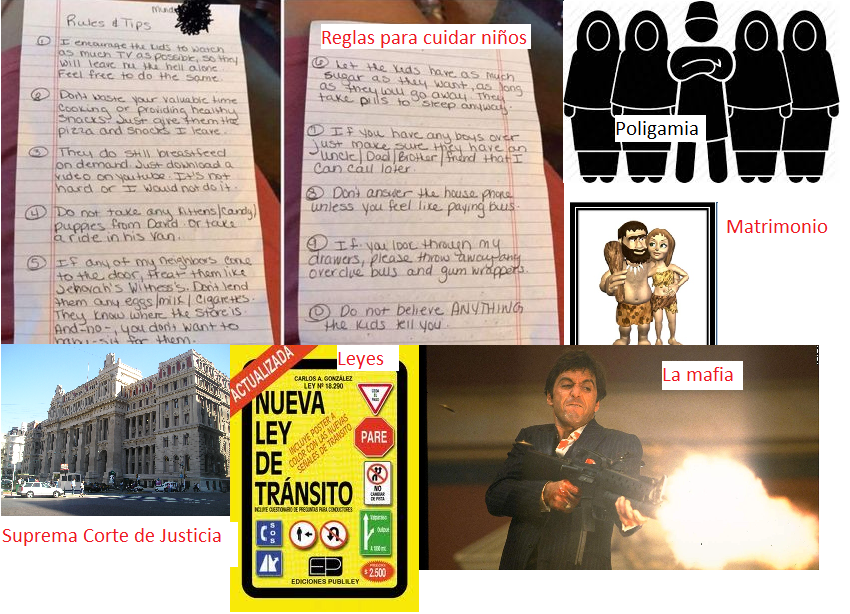 Rules & Tips
① I encourage the kids to watch
as much TV as possible, so they
will leave me the hell alone.
Feel free to do the same.
② Don't waste your valuable time
cooking or providing healthy
snacks. Just give them the
pizza and snacks I leave.
③ They do still breastfeed
on demand. Just download a
video on youtube. It's not
hard or I would not do it.
④ Do not take any kittens/candy/
puppies from David. Or take
a ride in his van.
⑤ If any of my neighbors come
to the door, treat them like
Jehovah's Witness's. Don't lend
them any eggs/milk/cigarettes.
They know where the store is.
And -no-, you don't want to
baby-sit for them.
Reglas para cuidar niños
⑥ Let the kids have as much
sugar as they want, as long
as they will go away. They
take pills to sleep anyway.
⑦ If you have any boys over
just make sure they have an
uncle/Dad/Brother/friend that I
can call later.
⑧ Don't answer the house phone
unless you feel like paying bills.
⑨ If you look through my
drawers, please throw away any
overdue bills and gum wrappers.
⑩ Do not believe ANYTHING
the kids tell you.
Poligamia
Matrimonio
Suprema Corte de Justicia
Leyes
ACTUALIZADA
CARLOS A. GONZÁLEZ
LEY Nº 18.290
NUEVA
LEY
DE
TRÁNSITO
INCLUYE POSTER A
COLOR CON LAS NUEVAS
SEÑALES DE TRÁNSITO
INCLUYE CUESTIONARIO DE PREGUNTAS PARA CONDUCTORES
CEDA
EL
PASO
PARE
NO
CAMBIAR
DE PISTA
SOS
Valparaíso
Quilpué
A 1000 m
EP
PRECIO
$ 2.500
EDICIONES PUBLILEY
La mafia